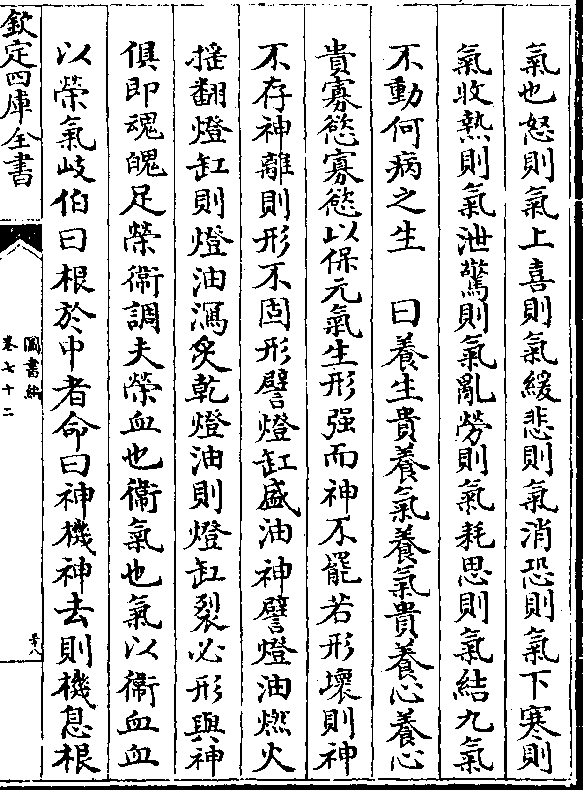 氣也怒則氣上喜則氣緩悲則氣消恐則氣下寒則
氣收熱則氣泄驚則氣亂勞則氣耗思則氣結九氣
不動何病之生　曰養生貴養氣養氣貴養心養心
貴寡慾寡慾以保元氣生形强而神不罷若形壞則神
不存神離則形不固形譬燈缸盛油神譬燈油燃火
搖翻燈缸則燈油瀉炙乾燈油則燈缸裂必形與神
俱即魂魄足榮衛調夫榮血也衞氣也氣以衛血血
以榮氣岐伯曰根於中者命曰神機神去則機息根
欽定四庫全書
圖書編
卷七十二